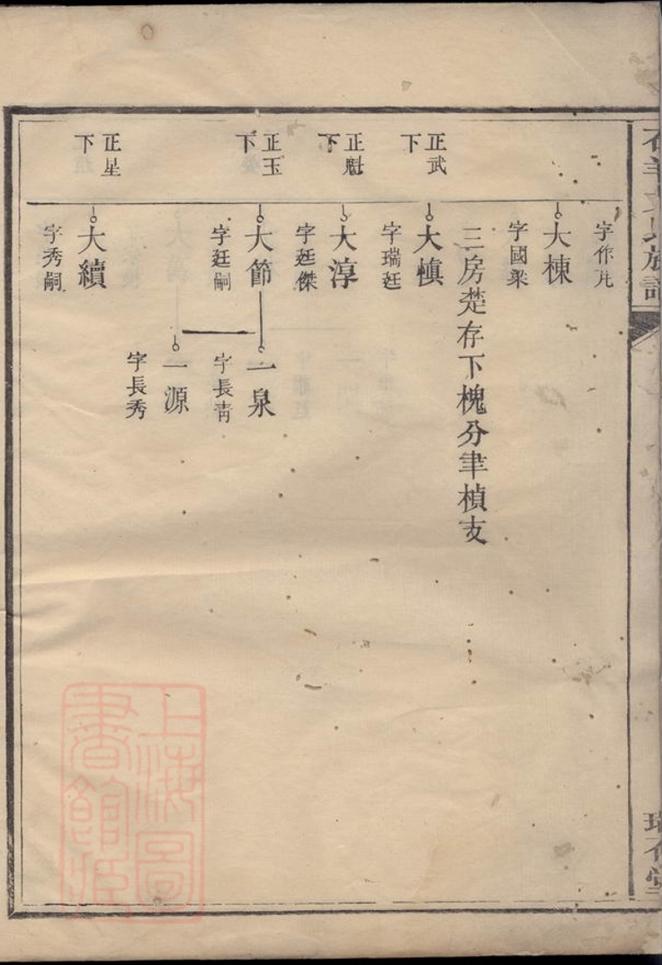 大棟
字國梁
三房楚存下槐分聿楨支
正武下
大槙
字瑞廷
正魁下
大淳
字廷傑
正玉下
大節
字廷嗣
一泉
字長青
一源
字長秀
正星下
大續
字秀嗣
上海圖書館藏